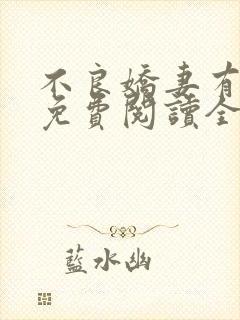 不良嬌妻有
免費閱讀全
藍水幽